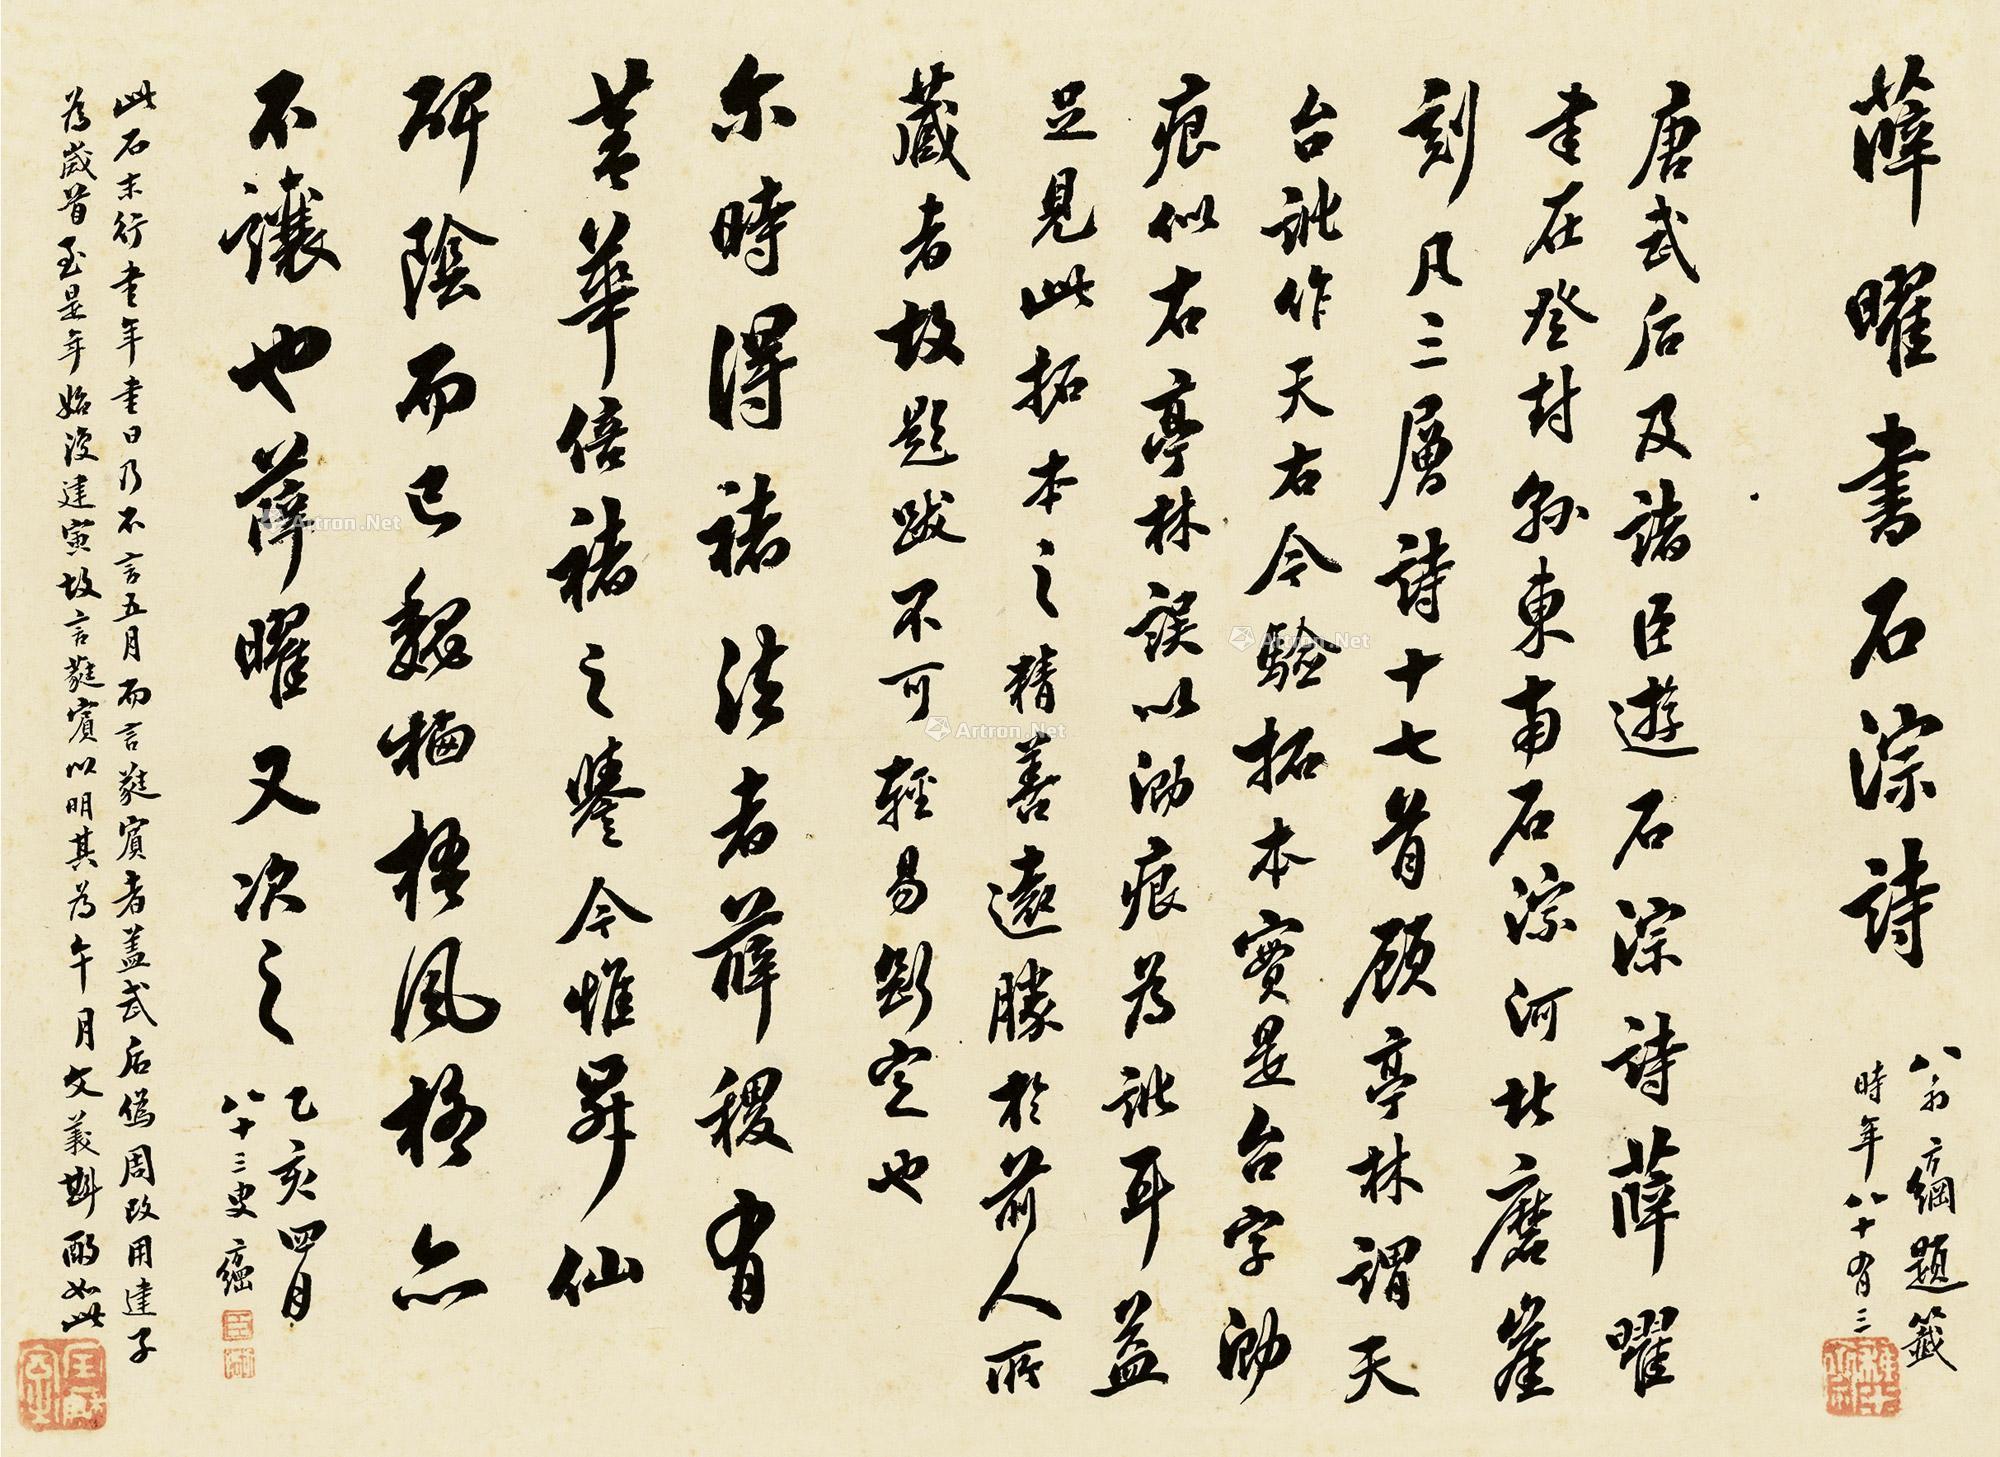 薛曜書石淙詩
八翁方綱題籤
時年八十有三
唐武后及諸臣遊石淙詩薛曜
書在登封縣東南石淙河北磨崖
刻凡三層詩十七首顧亭林謂天
台訛作天右今驗拓本實是台字泐
痕似右亭林誤以泐痕為訛耳蓋
足見此拓本之精善遠勝於前人所
藏者故題跋不可輕易斷定也
尔時得褚法者薛稷有
䒱華倍褚之譽今惟昇仙
碑陰而已魏栖梧風格亦
不讓也薛曜又次之
乙亥四月
八十三叟方綱
此石末行書年書日乃不言五月而言蕤賓者蓋武后僞周改用建子
為歲首至是年始復建寅故言蕤賓以明其為午月文義斟酌如此
Artron.Net
Artron.Net
Artron.Net